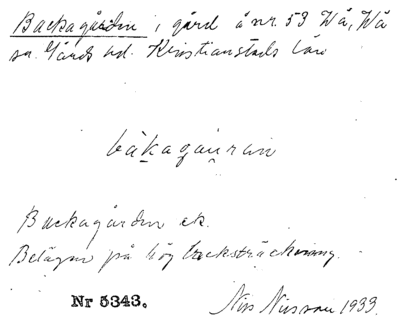 Backagården, gård å nr. 53 Wä, Wä
sn. Gärds hd. Kristianstads län
bàkagáuran
Backagården ek.
Belägen på hög backsträckning.
Nr 5343.
Nils Nilsson 1933.